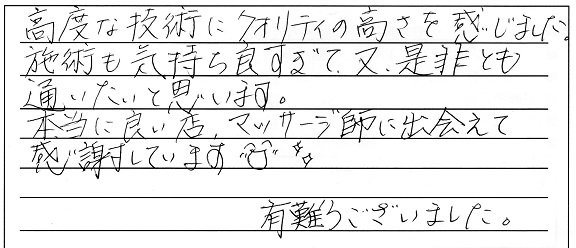 高度な技術にクオリティの高さを感じました。
施術も気持ち良すぎて、又、是非とも
通いたいと思います。
本当に良い店、マッサージ師に出会えて
感謝しています
有難うございました。